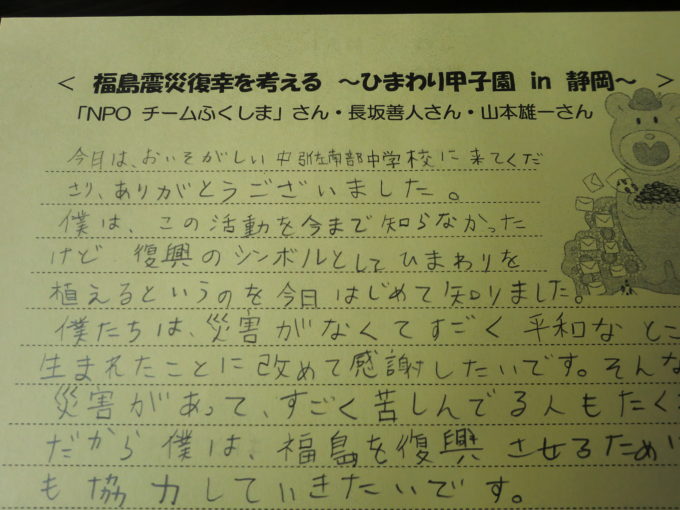 ＜ 福島震災復幸を考える ～ひまわり甲子園 in 静岡～ ＞
「NPO チームふくしま」さん・長坂善人さん・山本雄一さん
今日は、おいそがしい中 引佐南部中学校に来てくだ
さり、ありがとうございました。
僕は、この活動を今まで知らなかった
けど 復興のシンボルとしてひまわりを
植えるというのを今日はじめて知りました。
僕たちは、災害がなくてすごく平和なとこ
生まれたことに改めて感謝したいです。そんな
災害があって、すごく苦しんでる人もたく
だから僕は、福島を復興させるために
も協力していきたいです。